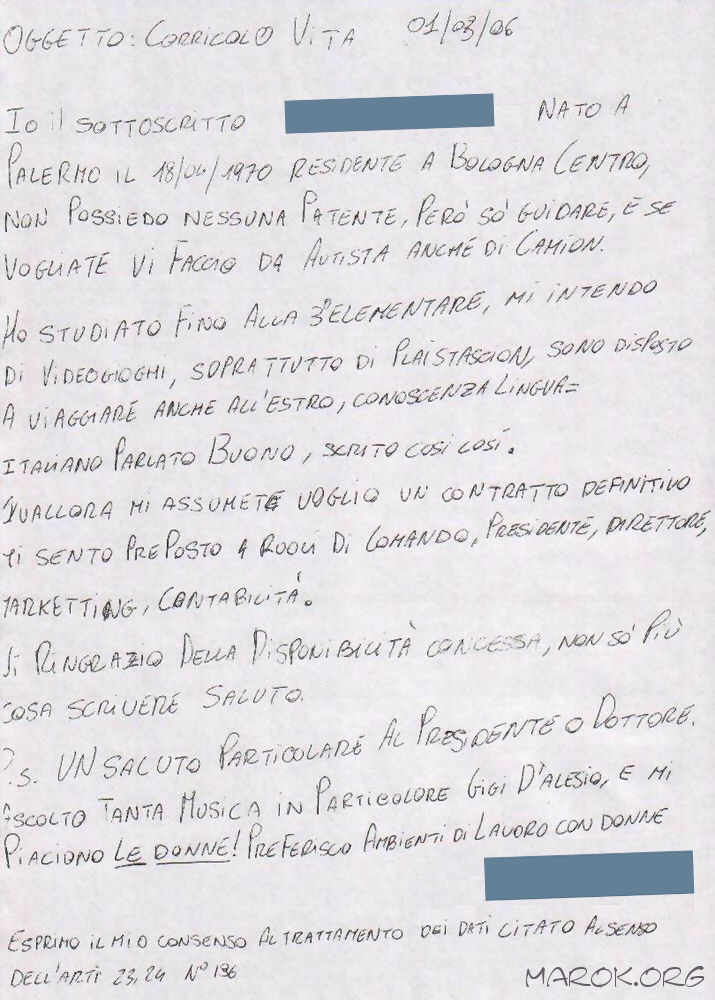 OGGETTO: CORRICOLO VITA 01/03/06
IO il SOTTOSCRITTO NATO A
PALERMO IL 18/04/1970 RESIDENTE A BOLOGNA CENTRO,
NON POSSIEDO NESSUNA PATENTE, PERÒ SÒ GUIDARE, E SE
VOGLIATE VI FACCIO DA AUTISTA ANCHE DI CAMION.
HO STUDIATO FINO ALLA 3ª ELEMENTARE, MI INTENDO
DI VIDEOGIOGHI, SOPRATTUTTO DI PLAISTASCION, SONO DISPOSTO
A VIAGGIARE ANCHE ALL'ESTRO, CONOSCENZA LINGUA=
ITALIANO PARLATO BUONO, SCRITO COSI COSÍ.
QUALLORA MI ASSUMETE VOGLIO UN CONTRATTO DEFINITIVO
MI SENTO PREPOSTO A RUOLI DI COMANDO, PRESIDENTE, DIRETTORE,
MARKETTING, CONTABILITÁ.
VI RINGRAZIO DELLA DISPONIBILITÀ CONCESSA, NON SÒ PIÙ
COSA SCRIVERE SALUTO.
P.S. UN SALUTO PARTICOLARE AL PRESIDENTE O DOTTORE.
ASCOLTO TANTA MUSICA IN PARTICOLORE GIGI D'ALESIO, E MI
PIACIONO LE DONNE! PREFERISCO AMBIENTI DI LAVORO CON DONNE
ESPRIMO IL MIO CONSENSO AL TRATTAMENTO DEI DATI CITATO AL SENSO
DELL'ARTI 23,24 N° 196
MAROK.ORG